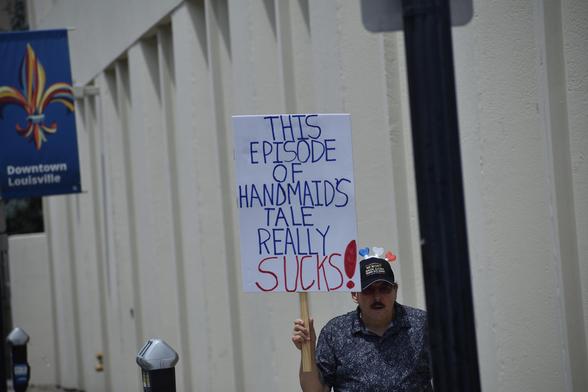 Downtown
Louisville
THIS
EPISODE
OF
HANDMAID'S
TALE
REALLY
SUCKS!